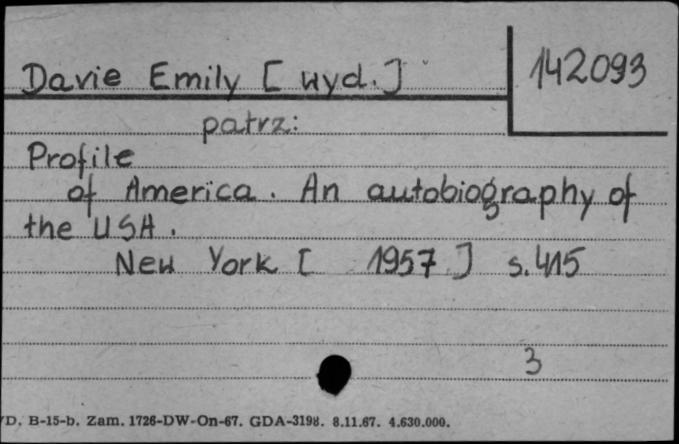 Davie Emily [wyd.]
142093
patrz:
Profile
of America. An autobiography of
the USA.
New York [ 1957 ] s. 415
3
D. B-15-b. Zam. 1726-DW-On-67. GDA-3198. 8.11.67. 4.630.000.